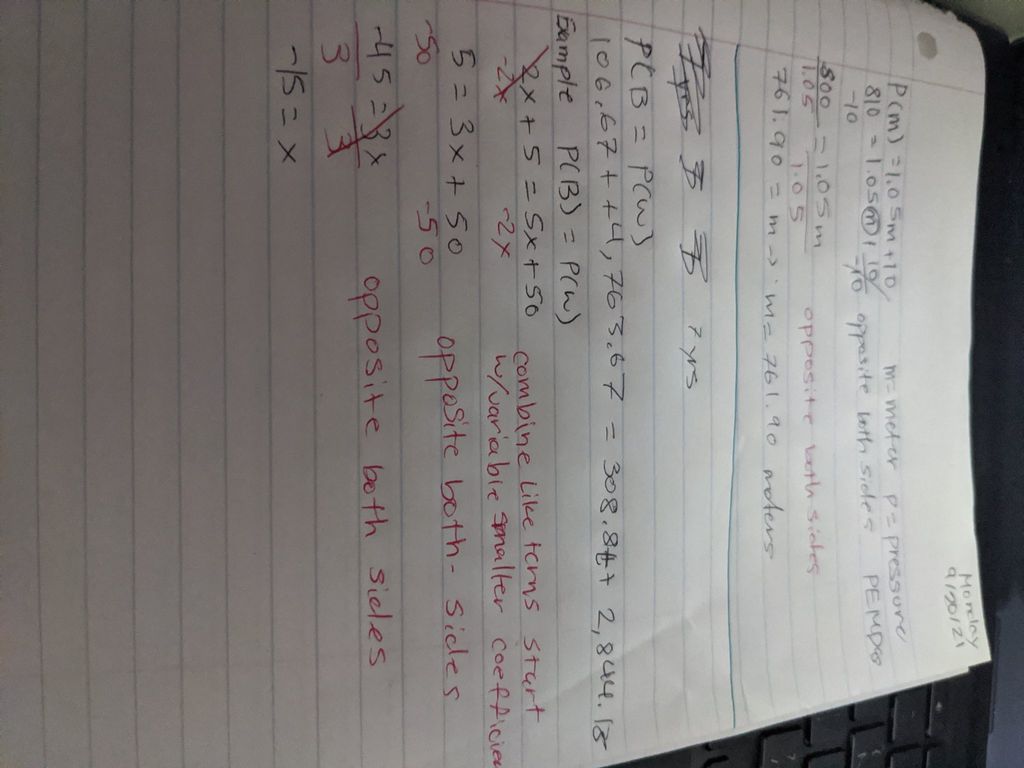 Monday
9/30/21
P(m) = 1.05m+10 m=meter p=pressure
810 = 1.05m + 10 opposite both sides PEMDAS
-10 -10
800 = 1.05m opposite both sides
1.05 1.05
761.90 = m → m = 761.90 meters
7 yrs
P(B = P(w)
106.67 + +4,763.67 = 308.8t + 2,844.18
Example P(B) = P(w)
2x + 5 = 5x + 50 combine like terms start
-2x -2x w/variable smaller coefficien
5 = 3x + 50 opposite both-sides
-50 -50
-45 = 3x opposite both sides
3 3
-15 = x